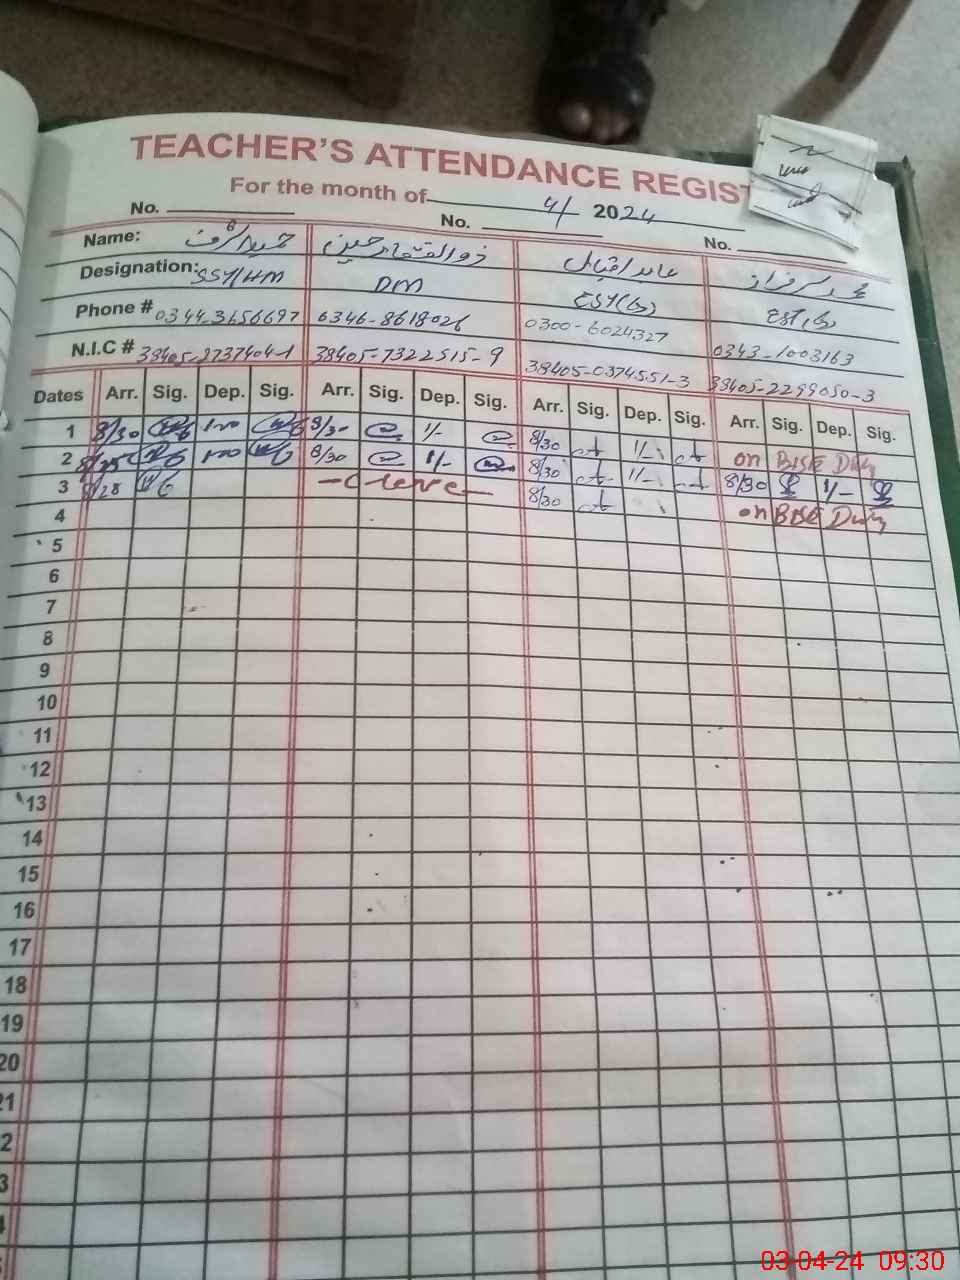 TEACHER'S ATTENDANCE REGIST
For the month of 4/ 2024
No. No. No.
Name: ذوالفقار حسین عابد اقبال محمد سرفراز
Designation: SST/HM DM EST(G) EST(G)
Phone # 0344-3656697 0346-8618026 0300-6024327 0343-1003163
N.I.C # 38405-7322515-9 38405-0374551-3 38405-2299050-3
Dates Arr. Sig. Dep. Sig. Arr. Sig. Dep. Sig. Arr. Sig. Dep. Sig. Arr. Sig. Dep. Sig.
1 8/30 8/30 1/- 8/30 1/- on BISE Duty
2 8/25 8/30 1/- 8/30 1/- 8/30 1/-
3 8/28 - C leave - 8/30 on BISE Duty
4
5
6
7
8
9
10
11
12
13
14
15
16
17
18
19
20
21
2
3
4
03-04-24 09:30